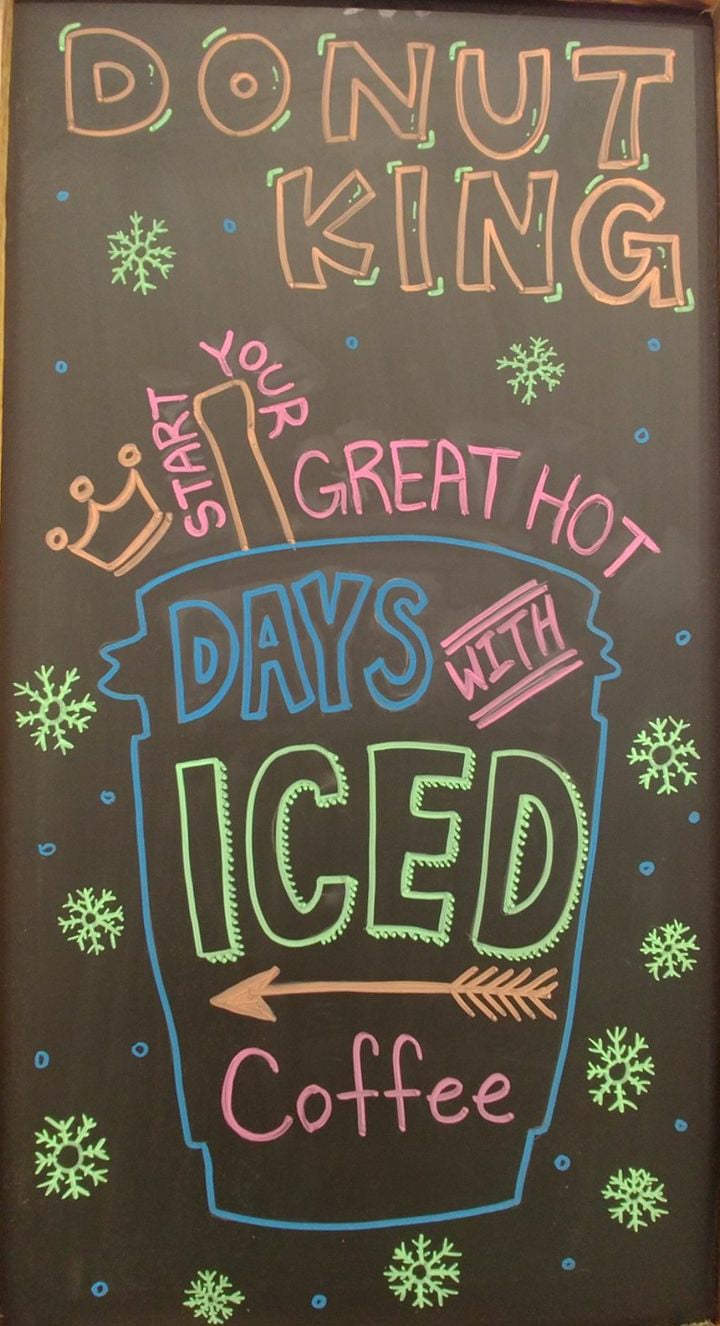 DONUT
KING
START YOUR GREAT HOT
DAYS WITH
ICED
Coffee